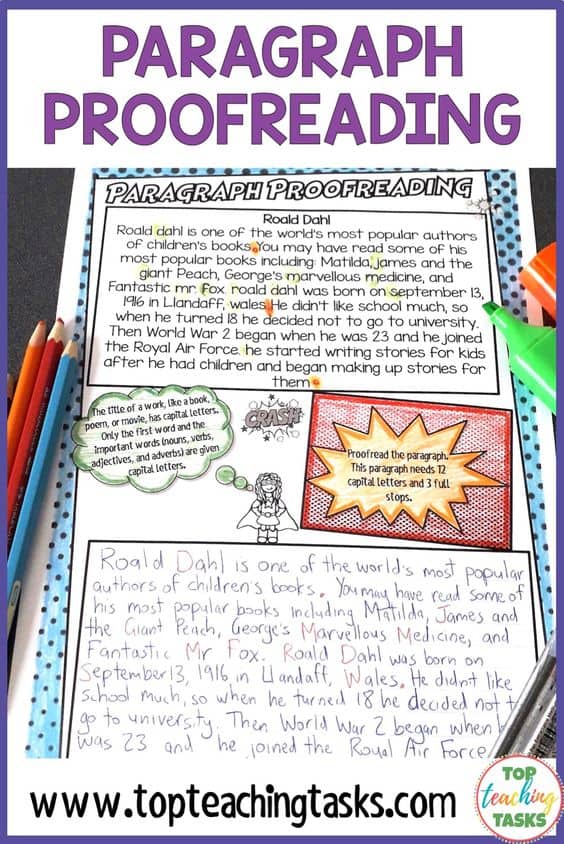 PARAGRAPH
PROOFREADING
PARAGRAPH PROOFREADING
Roald Dahl
Roald dahl is one of the world's most popular authors
of children's books. You may have read some of his
most popular books including: Matilda, james and the
giant Peach, George's marvellous medicine, and
Fantastic mr. fox. roald dahl was born on september 13,
1916 in Llandaff, wales. He didn't like school much, so
when he turned 18 he decided not to go to university.
Then World War 2 began when he was 23 and he joined
the Royal Air Force. he started writing stories for kids
after he had children and began making up stories for
them.
The title of a work, like a book,
poem, or movie, has capital letters.
Only the first word and the
important words (nouns, verbs,
adjectives, and adverbs) are given
capital letters.
CRASH
Proofread the paragraph.
This paragraph needs 12
capital letters and 3 full
stops.
Roald Dahl is one of the world's most popular
authors of children's books. You may have read some of
his most popular books including Matilda, James and
the Giant Peach, George's Marvellous Medicine, and
Fantastic Mr Fox. Roald Dahl was born on
September 13, 1916 in Llandaff, Wales. He didn't like
school much, so when he turned 18 he decided not
go to university. Then World War 2 began when
was 23 and he joined the Royal Air Force
www.topteachingtasks.com
TOP
teaching
TASKS